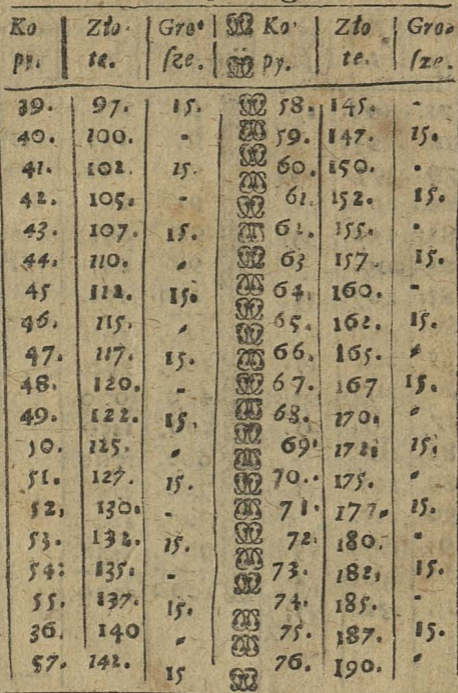 Ko Zło Gro Ko Zło Gro
py. te. ſze. py. te. ſze.
39. 97. 15. 58. 145. -
40. 100. - 59. 147. 15.
41. 102. 15. 60. 150. -
42. 105. - 61. 152. 15.
43. 107. 15. 62. 155. -
44. 110. - 63 157. 15.
45 112. 15. 64. 160. -
46. 115. - 65. 162. 15.
47. 117. 15. 66. 165. -
48. 120. - 67. 167 15.
49. 122. 15. 68. 170. -
50. 125. - 69. 172. 15.
51. 127. 15. 70. 175. -
52. 130. - 71. 177. 15.
53. 132. 15. 72. 180. -
54: 135. - 73. 182. 15.
55. 137. 15. 74. 185. -
36. 140 - 75. 187. 15.
57. 142. 15 76. 190. -